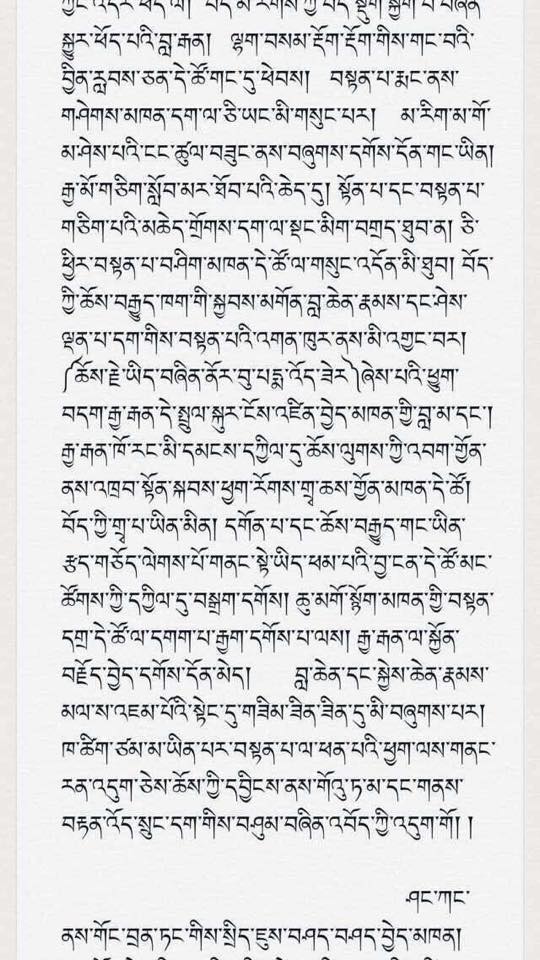 སྐྱུར་ཕོད་པའི་བླ་རྒན། ལྷག་བསམ་རྡོག་རྡོག་གིས་གང་བའི་
བྱིན་རླབས་ཅན་དེ་ཚོ་གང་དུ་ཕེབས། བསྟན་པ་རྨང་ནས་
གཤེགས་མཁན་དག་ལ་ཅི་ཡང་མི་གསུང་པར། མ་རིག་མ་གོ་
མ་ཤེས་པའི་ངང་ཚུལ་བཟུང་ནས་བཞུགས་དགོས་དོན་གང་ཡིན།
རྒྱ་མོ་གཅིག་སློབ་མར་ཐོབ་པའི་ཆེད་དུ། སྟོན་པ་དང་བསྟན་པ་
གཅིག་པའི་མཆེད་གྲོགས་དག་ལ་སྡང་མིག་བགྲད་ཐུབ་ན། ཅི་
ཕྱིར་བསྟན་པ་བཤིག་མཁན་དེ་ཚོ་ལ་གསུང་འདོན་མི་ཐུབ། བོད་
ཀྱི་ཆོས་བརྒྱུད་ཁག་གི་སྐྱབས་མགོན་བླ་ཆེན་རྣམས་དང་ཤེས་
ལྡན་པ་དག་གིས་བསྟན་པའི་འགན་ཁུར་ནས་མི་འགྱང་བར།
༼ཆོས་རྗེ་ཡིད་བཞིན་ནོར་བུ་པདྨ་འོད་ཟེར༽ཞེས་པའི་ཕྱུག་
བདག་རྒྱ་རྒན་དེ་སྤྲུལ་སྐུར་ངོས་འཛིན་བྱེད་མཁན་གྱི་བླ་མ་དང་།
རྒྱ་རྒན་ཁོ་རང་མི་དམངས་དཀྱིལ་དུ་ཆོས་ལུགས་ཀྱི་འབག་གྱོན་
ནས་འཁྲབ་སྟོན་སྐབས་ཕྱག་རོགས་གྲྭ་ཆས་གྱོན་མཁན་དེ་ཚོ།
བོད་ཀྱི་གྲྭ་པ་ཡིན་མིན། དགོན་པ་དང་ཆོས་བརྒྱུད་གང་ཡིན་
རྩད་གཅོད་ལེགས་པོ་གནང་སྟེ་ཡིད་ཕམ་པའི་བྱ་ངན་དེ་ཚོ་མང་
ཚོགས་ཀྱི་དཀྱིལ་དུ་བསྒྲག་དགོས། ཆུ་མགོ་རྙོག་མཁན་གྱི་བསྟན་
དགྲ་དེ་ཚོ་ལ་དགག་པ་རྒྱག་དགོས་པ་ལས། རྒྱ་རྒན་ལ་སྐྱོན་
བརྗོད་བྱེད་དགོས་དོན་མེད། བླ་ཆེན་དང་སྐྱེས་ཆེན་རྣམས་
མལ་ས་འཇམ་པོའི་སྟེང་དུ་གཟིམ་ཟིན་ཟིན་དུ་མི་བཞུགས་པར།
ཁ་ཚིག་ཙམ་མ་ཡིན་པར་བསྟན་པ་ལ་ཕན་པའི་ཕྱག་ལས་གནང་
རན་འདུག་ཅེས་ཆོས་ཀྱི་དབྱིངས་ནས་གོའུ་ཏ་མ་དང་གནས་
བརྟན་འོད་སྲུང་དག་གིས་བཤུམ་བཞིན་འབོད་ཀྱི་འདུག་གོ། །
ཤང་ཀང་
ནས་གོང་བྲན་ཏང་གིས་སྲིད་ཇུས་བཤད་བཤད་བྱེད་མཁན།